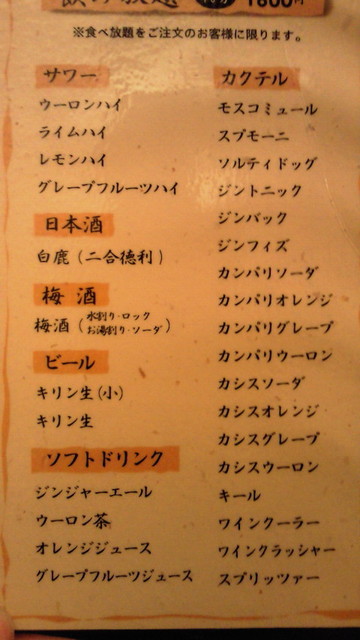 飲み放題 1600円
※食べ放題をご注文のお客様に限ります。
サワー
ウーロンハイ
ライムハイ
レモンハイ
グレープフルーツハイ
日本酒
白鹿(二合徳利)
梅酒
梅酒(水割り・ロック
お湯割り・ソーダ)
ビール
キリン生(小)
キリン生
ソフトドリンク
ジンジャーエール
ウーロン茶
オレンジジュース
グレープフルーツジュース
カクテル
モスコミュール
スプモーニ
ソルティドッグ
ジントニック
ジンバック
ジンフィズ
カンパリソーダ
カンパリオレンジ
カンパリグレープ
カンパリウーロン
カシスソーダ
カシスオレンジ
カシスグレープ
カシスウーロン
キール
ワインクーラー
ワインクラッシャー
スプリッツァー